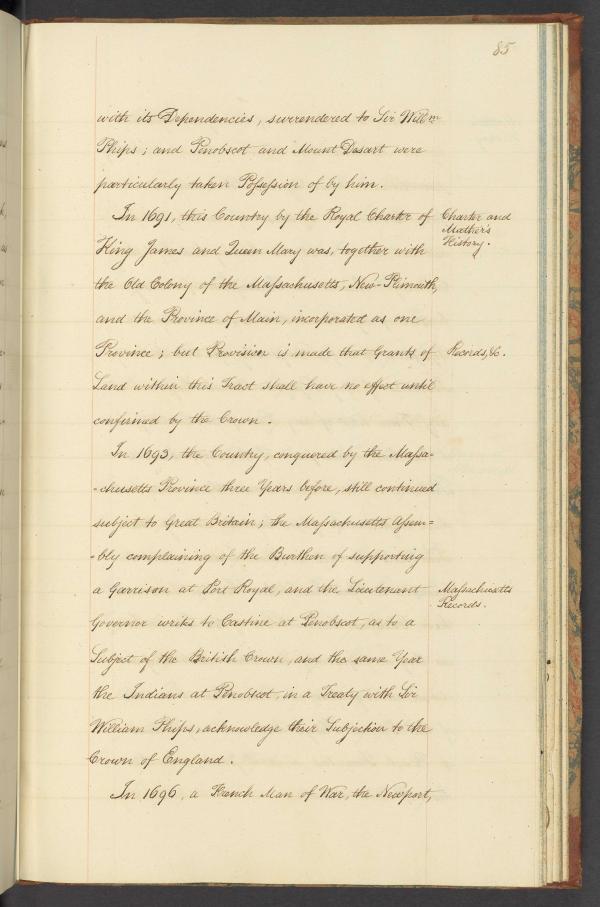 85
with its Dependencies, surrendered to Sir Will.m
Phips; and Penobscot and Mount Desart were
particularly taken Possession of by him.
In 1691, this Country by the Royal Charter of
Charter and
Mather's
History.
King James and Queen Mary was, together with
the Old Colony of the Massachusetts, New-Plimouth,
and the Province of Main, incorporated as one
Province; but Provision is made that Grants of
Records, &c.
Land within this Tract shall have no effect until
confirmed by the Crown.
In 1693, the Country, conquered by the Massa-
-chusetts Province three Years before, still continued
subject to Great Britain; the Massachusetts Assem=
-bly complaining of the Burthen of supporting
a Garrison at Port Royal, and the Lieutenant
Massachusetts
Records.
Governor writes to Castine at Penobscot, as to a
Subject of the British Crown, and the same Year
the Indians at Penobscot, in a Treaty with Sir
William Phips, acknowledge their Subjection to the
Crown of England.
In 1696, a French Man of War, the Newport,